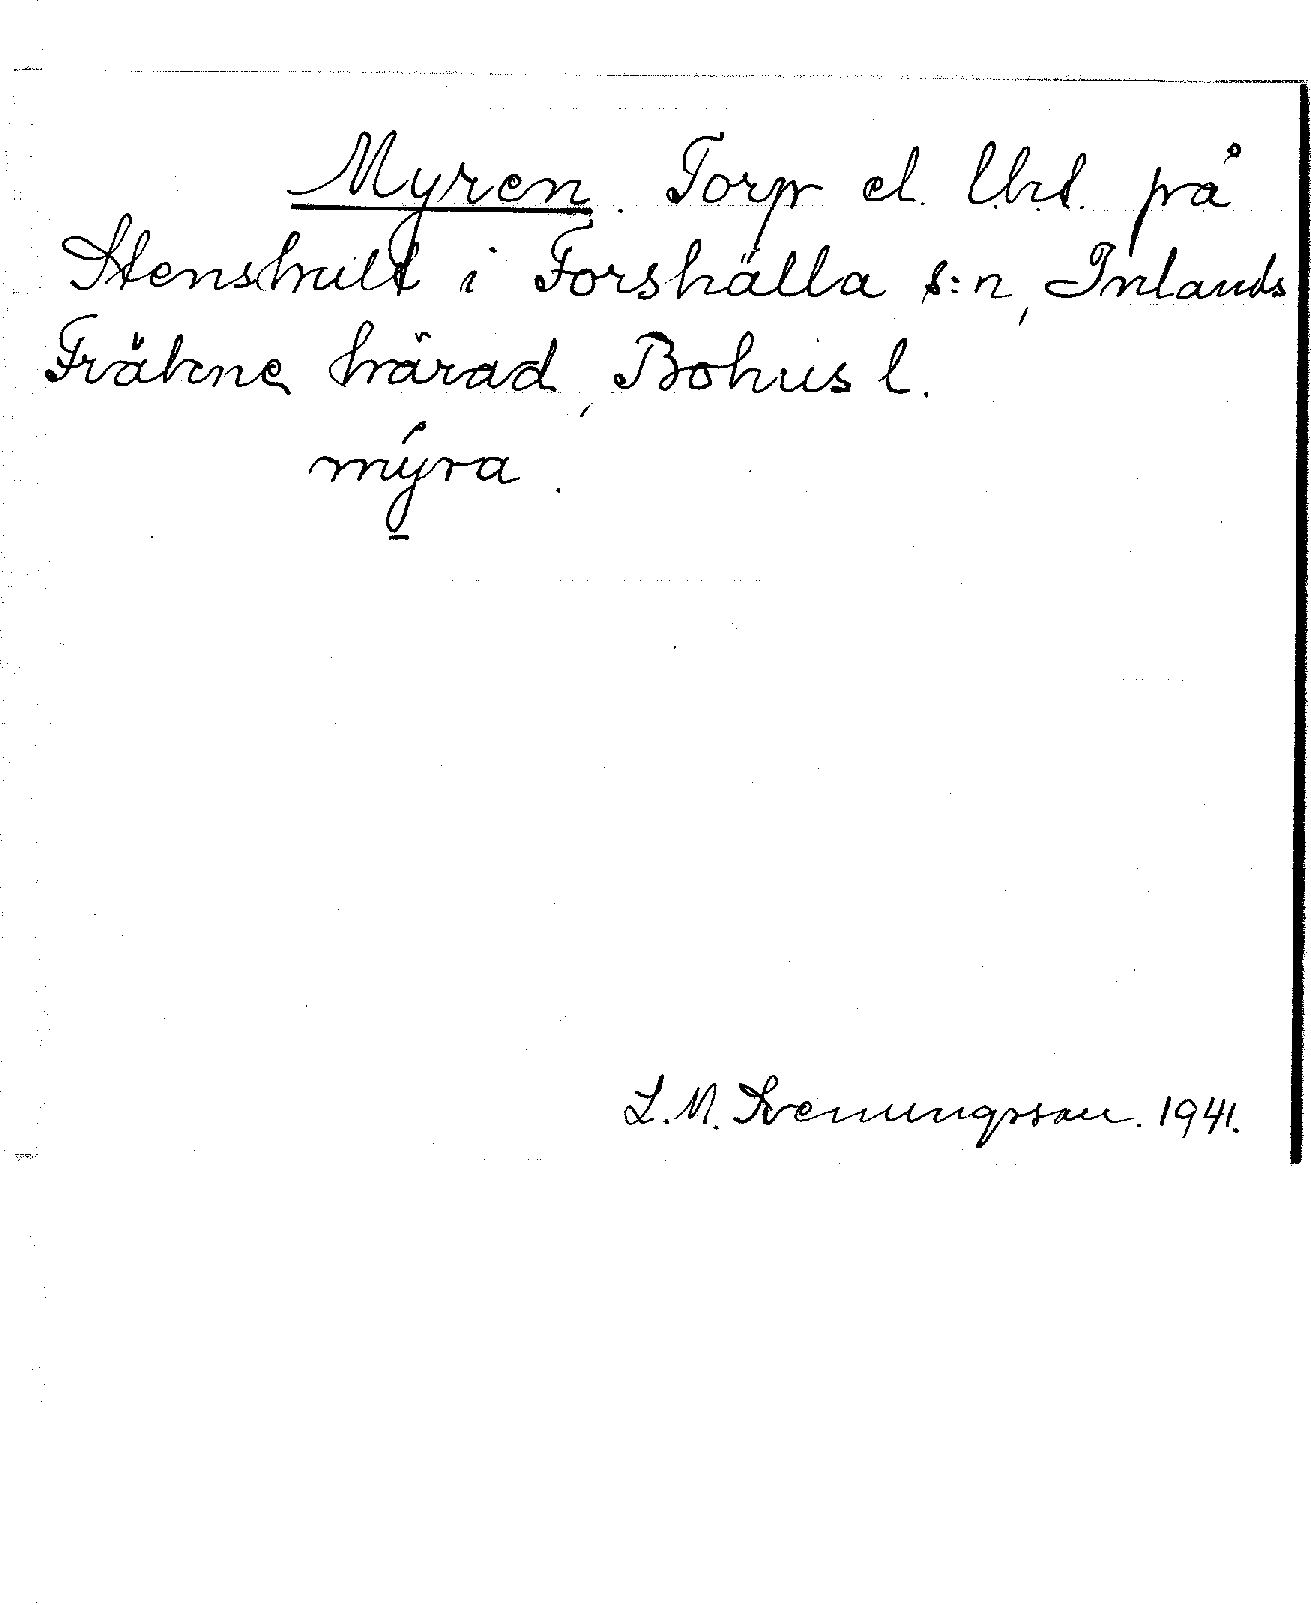 Myren. Torp el. lht. på
Stenshult i Forshälla s:n, Inlands
Fräkne härad, Bohus l.
mýra.
L. M. Svenungsson. 1941.